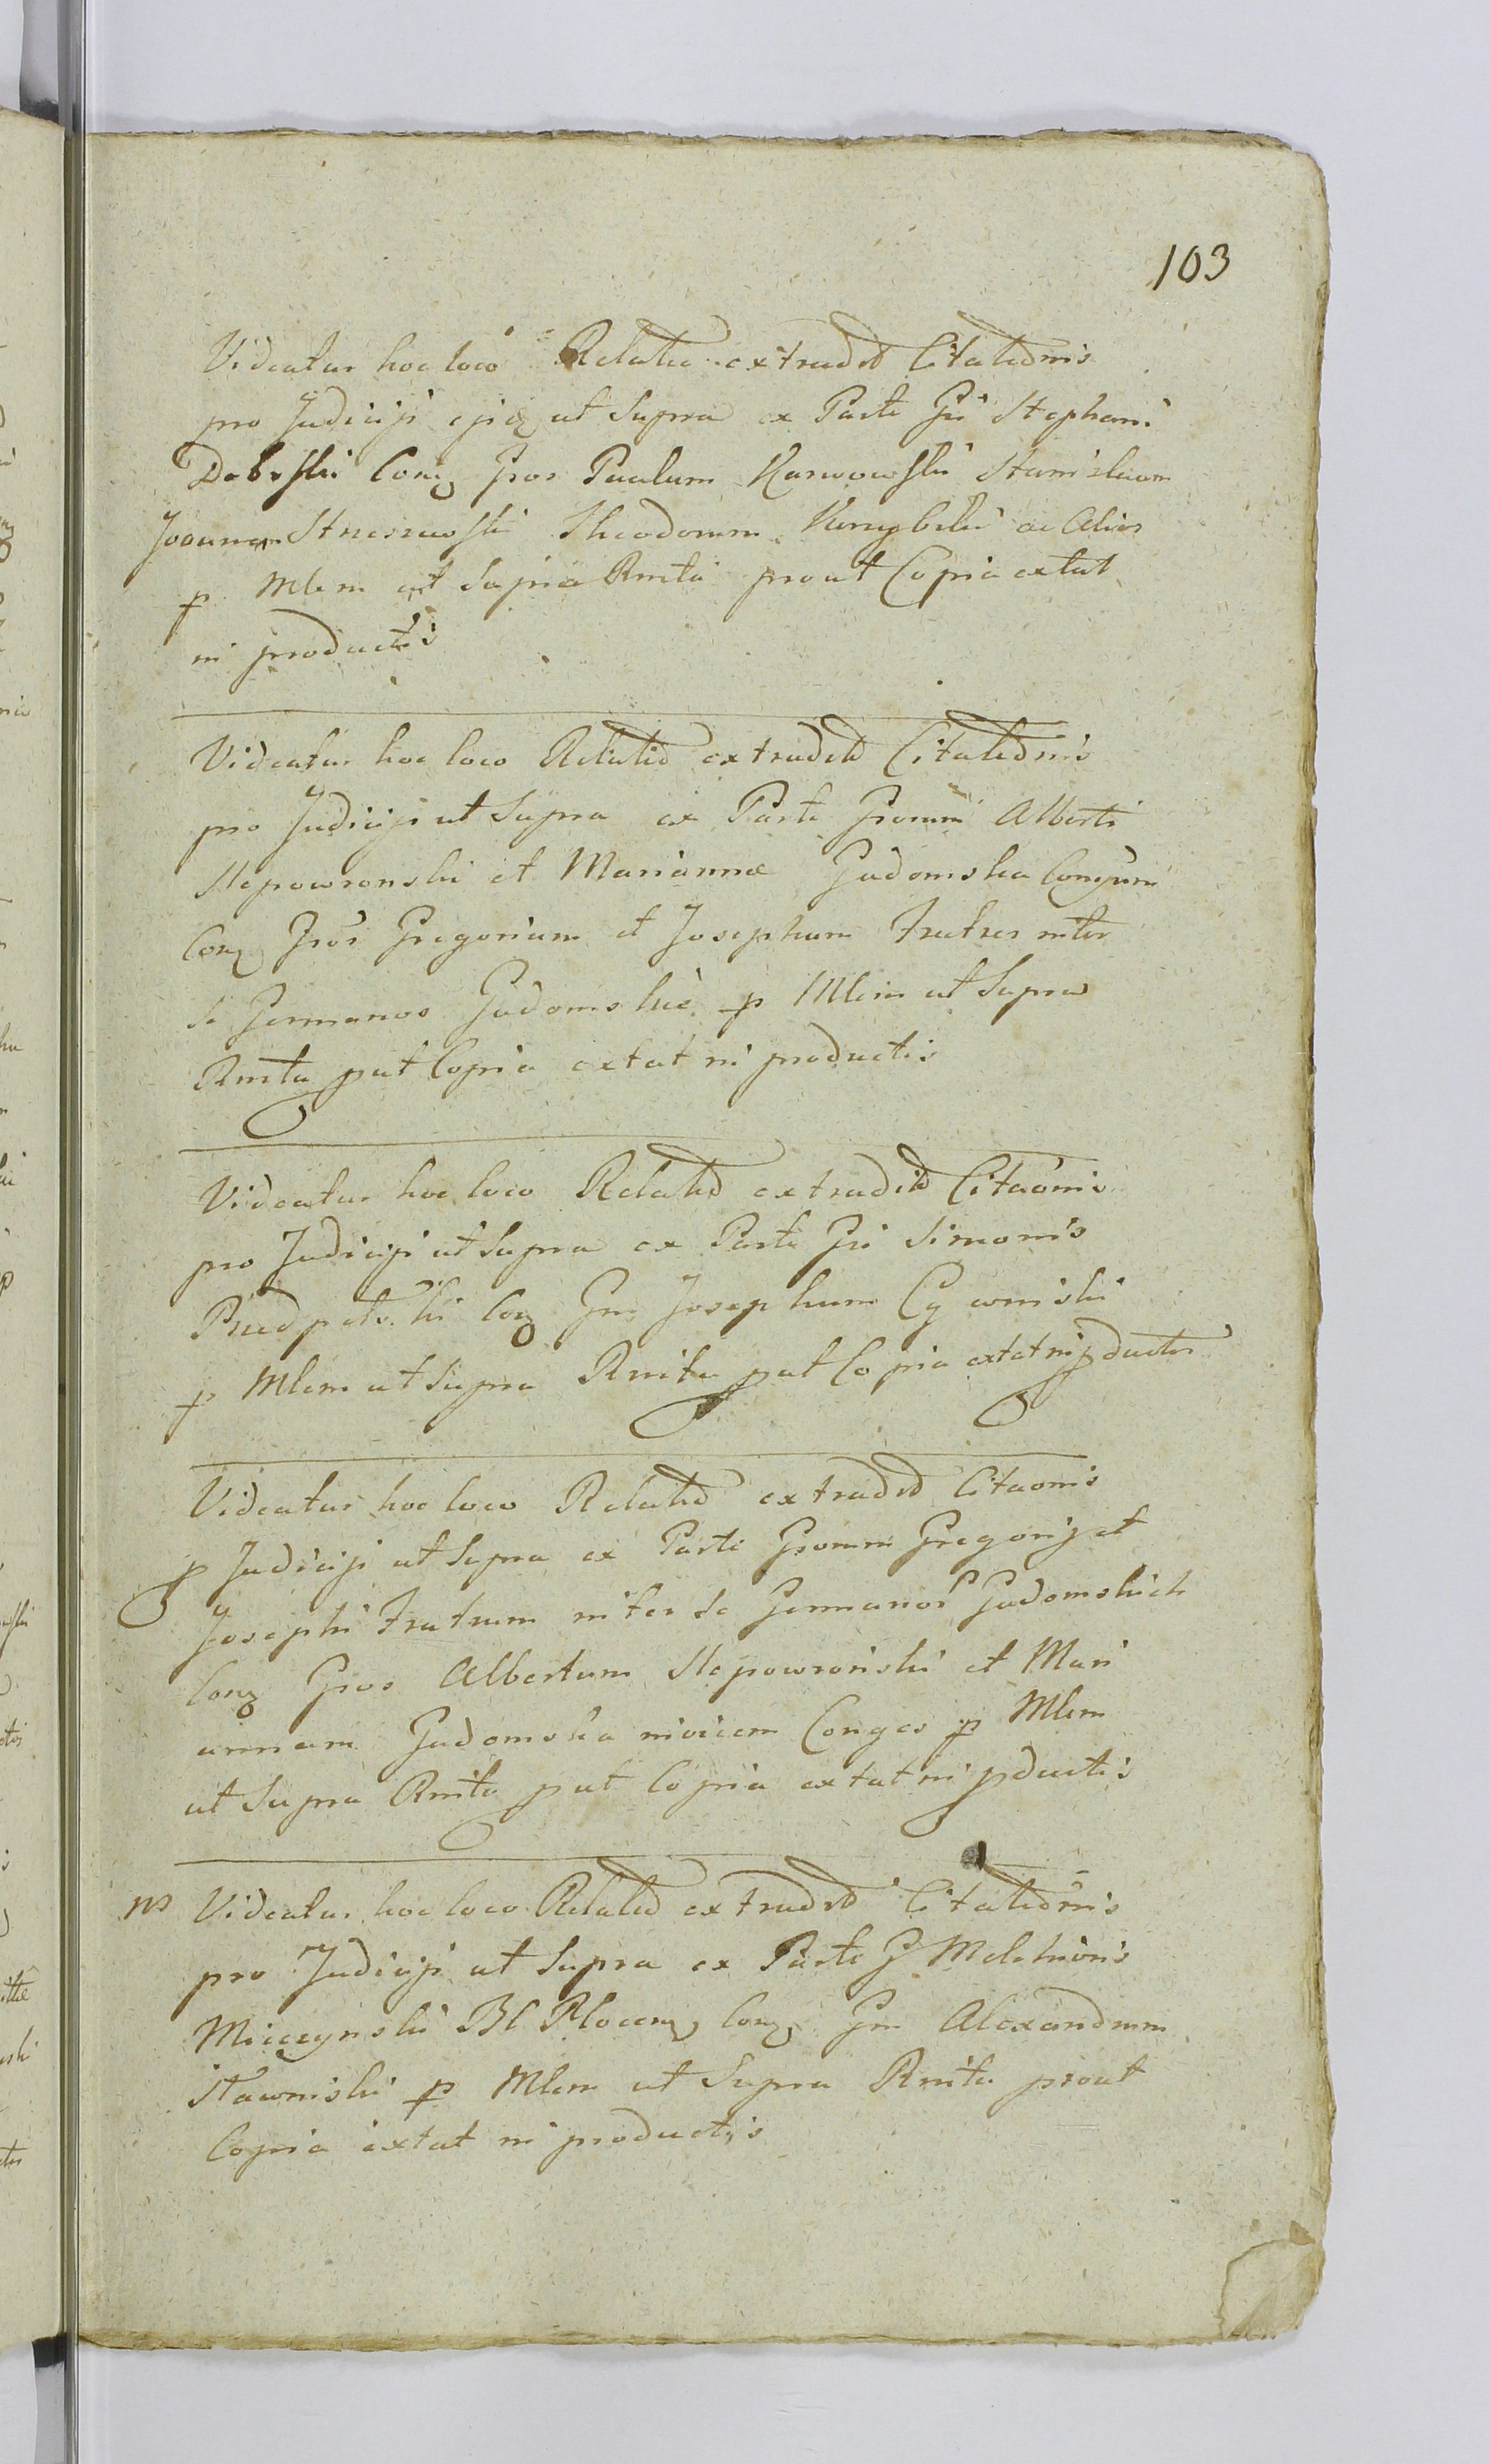 103
Videatur hoc loco Relatio extraditio Citationis
pro Judiciji ut Supra ex Parte Gsi Stephani
Dobrski Conq Gsos Paulum Karwowski Stanislaum
Joannem Theodorum ac Alios
p Mlem ut Supra Rmta prout Copia extat
in productis
Videatur hoc loco Relatio extraditio Citationis
pro Judiciji ut Supra ex Parte Gsorum Alberti
Slepowronski et Mariannæ Gadomska Conjum
Conq Gsos Gregorium et Josephum Fratres inter
se Germanos Gadomskie p Mlem ut Supra
Rmta put Copia extat in productis
Videatur hoc loco Relatio extraditio Citaonis
pro Judiciji ut Supra ex Parte Gsi Simonis
Przedpelski Conq Gm Josephum Cywinski
p Mlem ut Supra Rmta put Copia extat in pductis
Videatur hoc loco Relatio extraditio Citaonis
p Judiciji ut Supra ex Parte Gsorum Gregorij et
Josephi Fratrum inter se Germanor Gadomskich
Conq Gsos Albertum Slepowroński et Mari
annam Gadomska invicem Conges p Mlem
ut Supra Rmta put Copia extat in pductis
Videatur hoc loco Relatio extraditio Citationis
pro Judiciji ut Supra ex Parte G Melchioris
Mieczynski Bl Plocen Conq Gm Alexandrum
Sławinski p Mlem ut Supra Rmta prout
Copia extat in productis